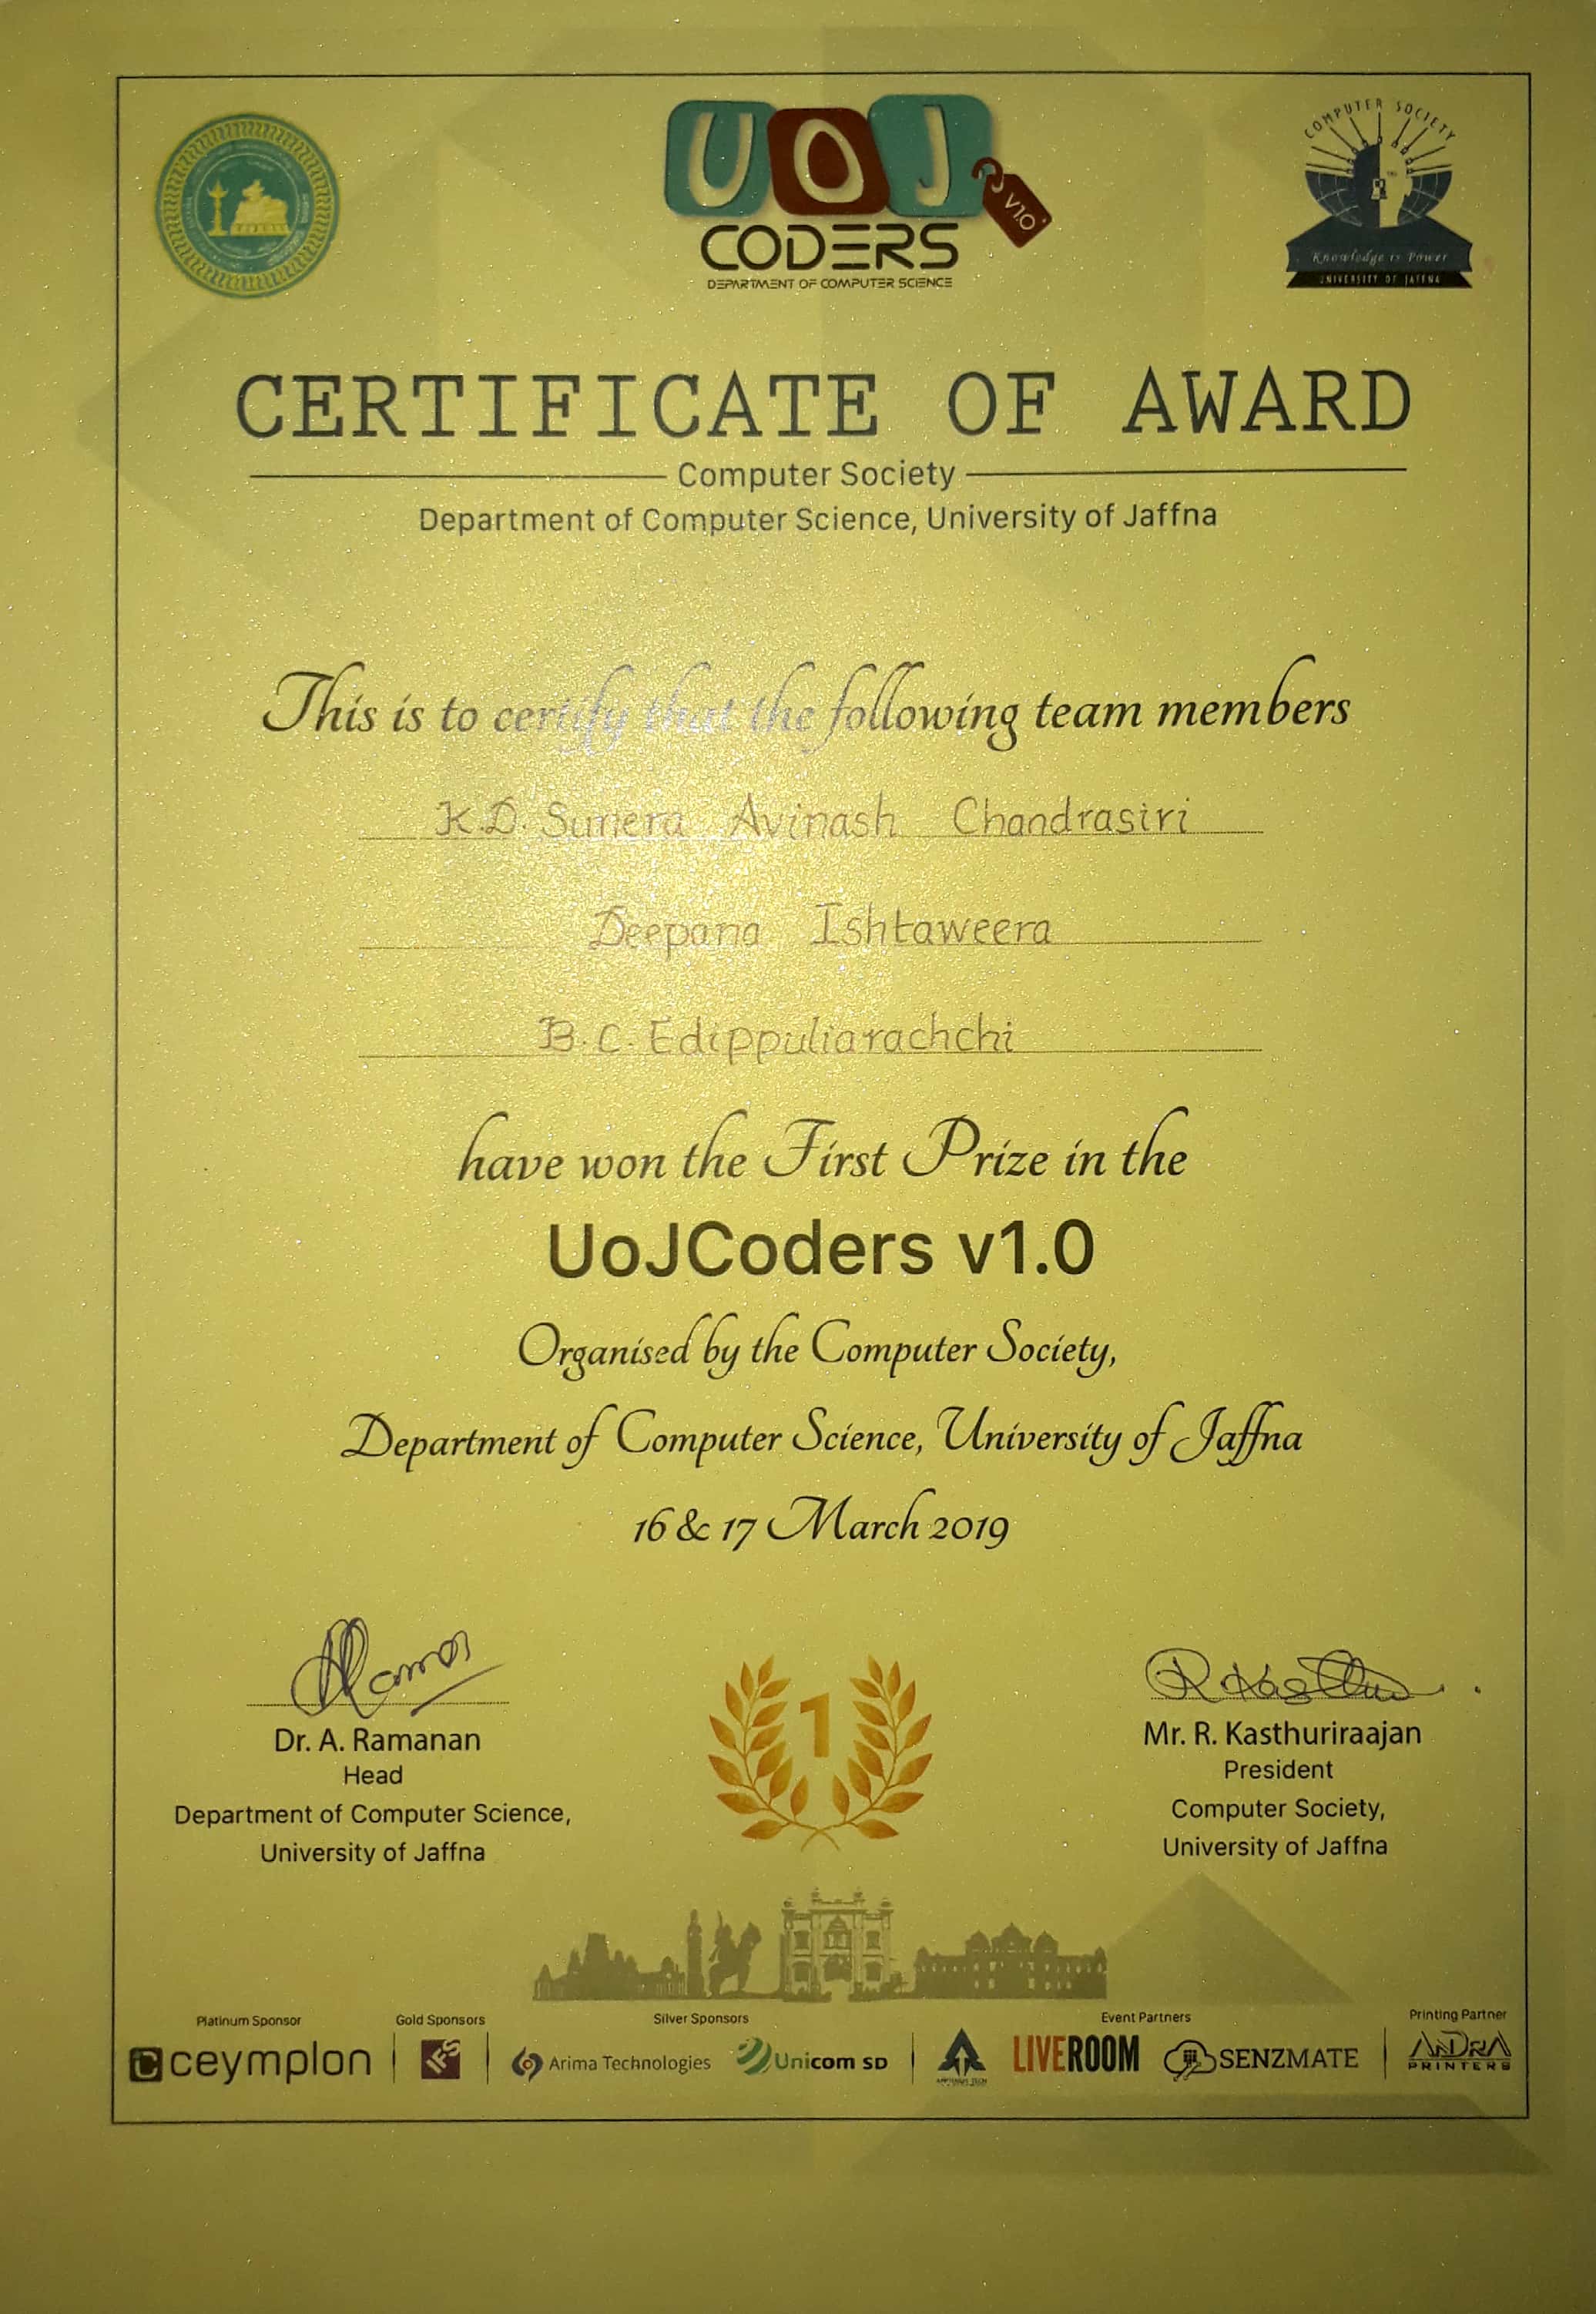 UOJ
V1.0
CODERS
DEPARTMENT OF COMPUTER SCIENCE
COMPUTER SOCIETY
Knowledge is Power
UNIVERSITY OF JAFFNA
CERTIFICATE OF AWARD
Computer Society
Department of Computer Science, University of Jaffna
This is to certify that the following team members
K.D. Sunera Avinash Chandrasiri
Deepana Ishtaweera
B.C. Edippuliarachchi
have won the First Prize in the
UoJCoders v1.0
Organised by the Computer Society,
Department of Computer Science, University of Jaffna
16 & 17 March 2019
1
Dr. A. Ramanan
Head
Department of Computer Science,
University of Jaffna
Mr. R. Kasthuriraajan
President
Computer Society,
University of Jaffna
Platinum Sponsor
ceymplon
Gold Sponsors
IFS
Silver Sponsors
Arima Technologies
Unicom SD
Event Partners
LIVEROOM
SENZMATE
Printing Partner
ANDRA
PRINTERS